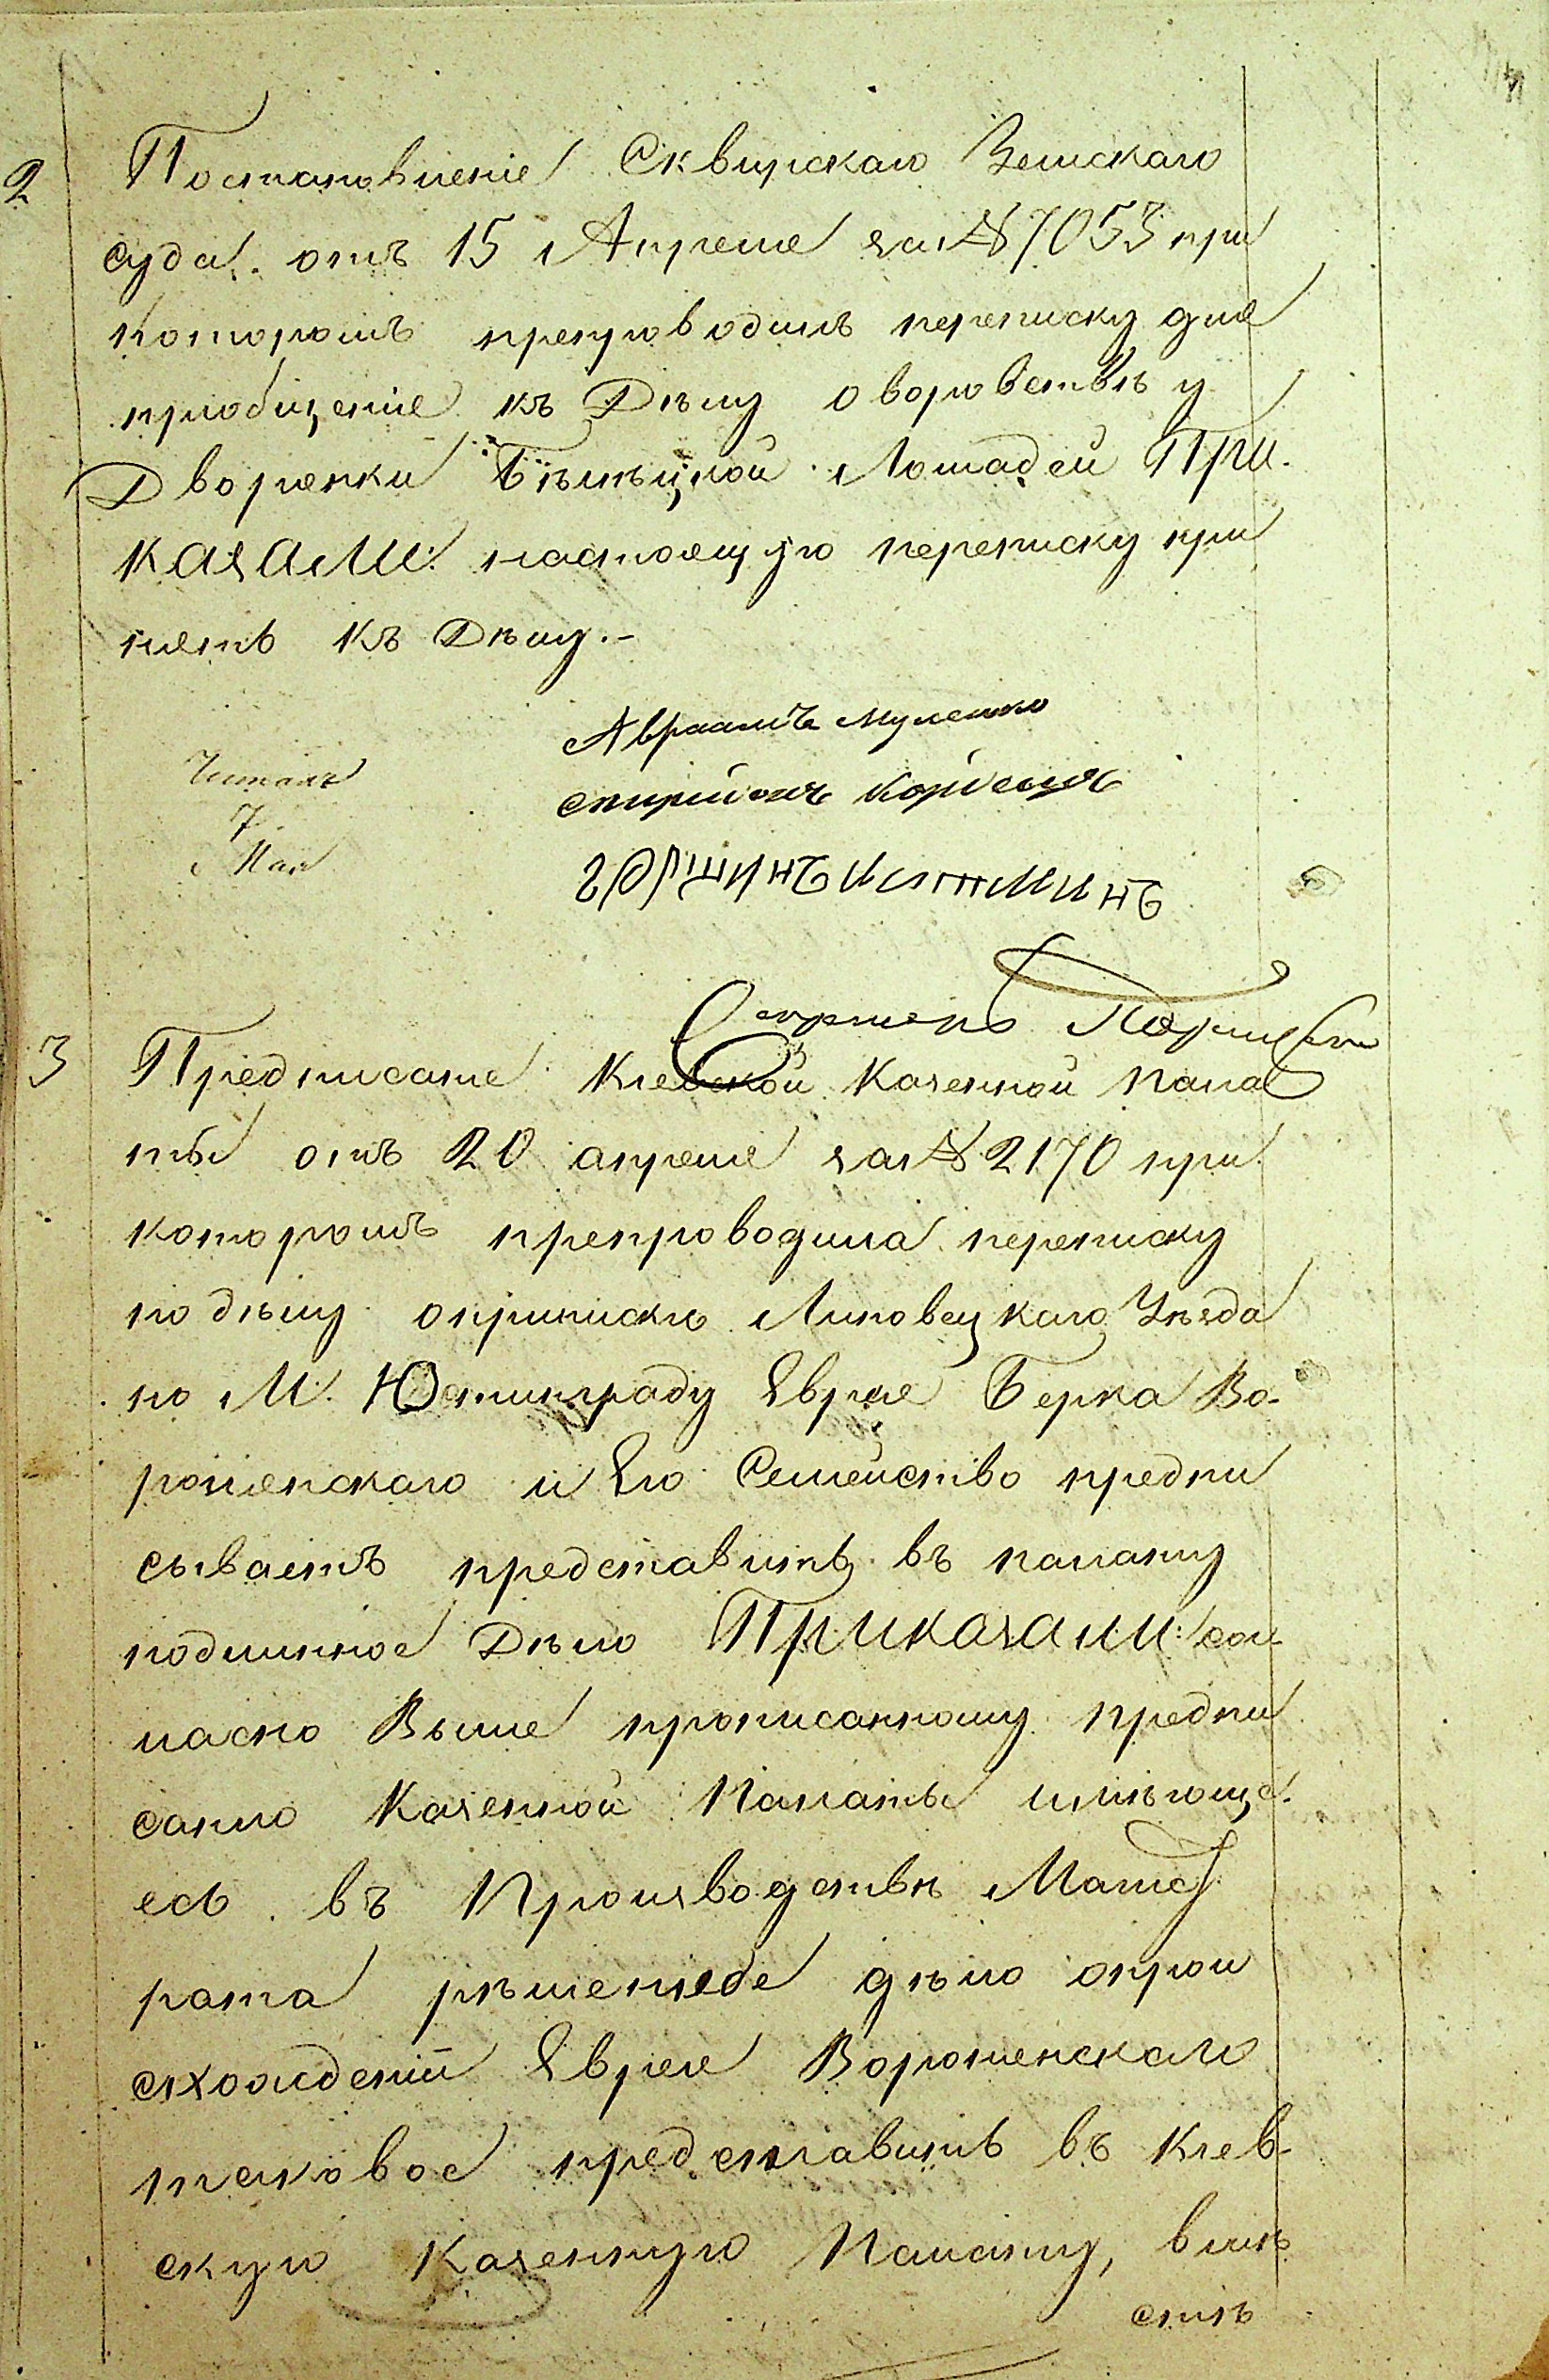 2
Постановленіе Сквирскаго Земскаго
суда отъ 15 Апреля за № 7053 при
которомъ препроводилъ переписку для
приобщенія къ Дѣлу о воровствѣ у
Дворянки Бѣлѣцкой Лошадей При
казали: настоящую переписку при
нять къ Дѣлу.-
Авраамъ
Читалъ
7
Мая
3
Предписаніе Кіевской Казенной Пала
ты отъ 20 апреля за № 2170 при
которомъ препроводила переписку
по дѣлу о припискѣ Липовецкаго Уѣзда
по М. Юстинграду Еврея Берка Во-
роненскаго и Его Семейство предпи
сываетъ представить въ палату
подлинное Дѣло Приказали: сог
ласно Выше прописанному предпи
санію Казенной Палаты имѣюще
есь въ Производствѣ Магист
рата дѣло о прои
схожденіи Еврея Вороненскаго
таковое представить въ Кіев-
скую Казенную Палату, вмѣ
стѣ